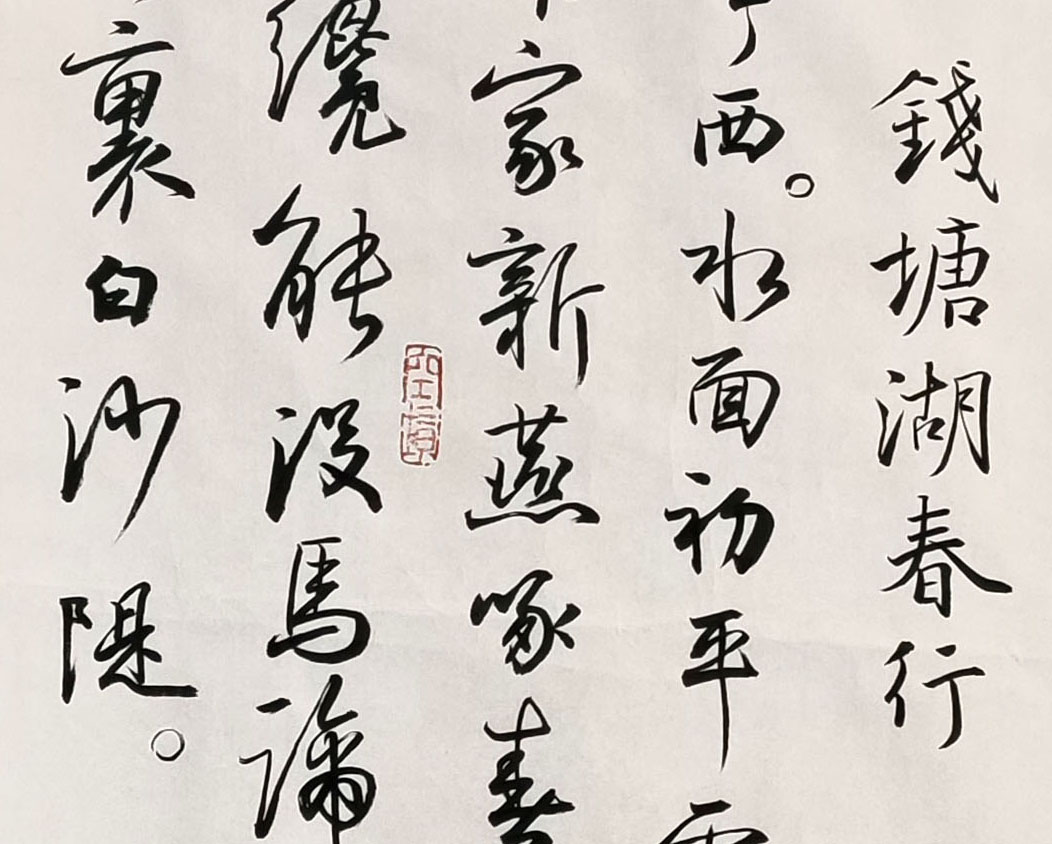 錢塘湖春行
西。水面初平
家新燕啄春
纔能没馬蹄
裏白沙隄。